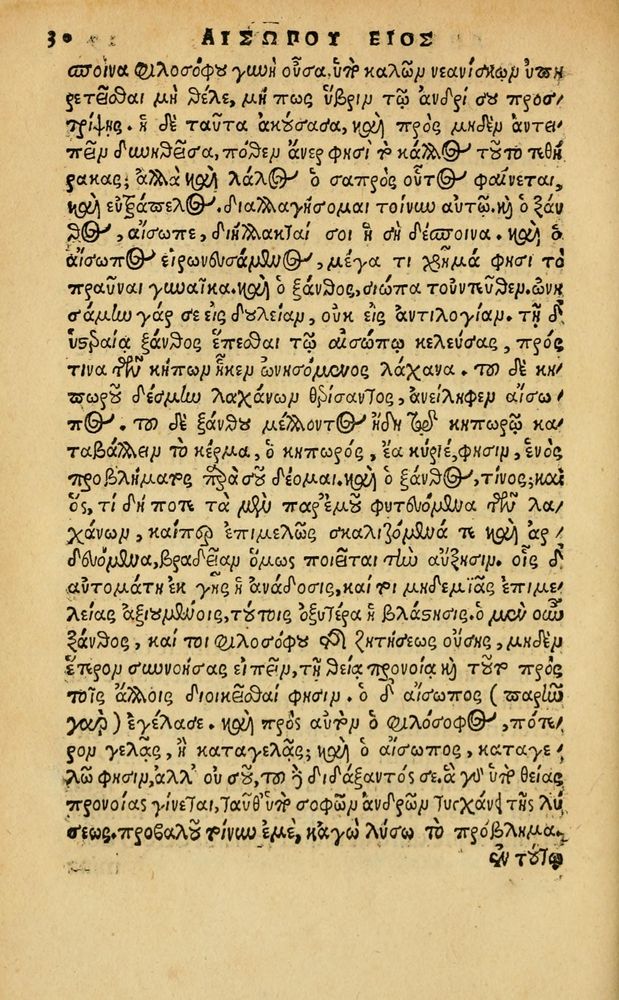 30 ΑΙΣΩΠΟΥ ΒΙΟΣ
σποινα φιλοσόφου γυνὴ οὖσα, ὑπὸ καλῶν νεανίσκων ὑπη
ρετεῖσθαι μὴ θέλε, μή πως ὕβριν τῷ ἀνδρί σου προσ
τρίψῃς. ἡ δὲ ταῦτα ἀκούσασα, καὶ πρὸς μηδὲν ἀντει
πεῖν δυνηθεῖσα, πόθεν ἄνερ φησὶ τὸ κάλλος τοῦτο τεθή
ρακας; ἀλλὰ καὶ λάλος ὁ σαπρὸς οὗτος φαίνεται,
καὶ εὐτράπελος. διαλλαγήσομαι τοίνυν αὐτῷ. καὶ ὁ ξάν
θος, αἴσωπε, διήλλακταί σοι ἡ σὴ δέσποινα. καὶ ὁ
αἴσωπος εἰρωνευσάμενος, μέγα τι χρῆμά φησι τὸ
πραῦναι γυναῖκα. καὶ ὁ ξάνθος, σιώπα τοὐντεῦθεν. ὠνη
σάμην γάρ σε εἰς δουλείαν, οὐκ εἰς ἀντιλογίαν. τῇ δ
ὑστεραία ξάνθος ἕπεσθαι τῷ αἰσώπῳ κελεύσας, πρός
τινα τῶν κήπων ἧκεν ὠνησόμενος λάχανα. τοῦ δὲ κη
πωροῦ δέσμην λαχάνων θρίσαντος, ἀνείληφεν αἴσω
πος. τοῦ δὲ ξάνθου μέλλοντος ἤδη τῷ κηπωρῷ κα
ταβάλλειν τὸ κέρμα, ὁ κηπωρός, ἔα κύριέ, φησιν, ἑνὸς
προβλήματος παρὰ σοῦ δέομαι. καὶ ὁ ξάνθος, τίνος; καὶ
ὅς, τί δή ποτε τὰ μὲν παρ' ἐμοῦ φυτευόμενα τῶν λα
χάνων, καίπερ ἐπιμελῶς σκαλιζόμενά τε καὶ ἀρ
δευόμενα, βραδεῖαν ὅμως ποιεῖται τὴν αὔξησιν. οἷς δ
αὐτομάτη ἐκ γῆς ἡ ἀνάδοσις, καί τοι μηδεμιᾶς ἐπιμε
λείας ἀξιουμένοις, τούτοις ὀξυτέρα ἡ βλάστησις. ὁ μὲν οὖν
ξάνθος, καί τοι φιλοσόφου τῆς ζητήσεως οὔσης, μηδὲν
ἕτερον συννοήσας εἰπεῖν, τῇ θεία προνοία καὶ τοῦτο πρὸς
τοῖς ἄλλοις διοικεῖσθαί φησιν. ὁ δ αἴσωπος (παρῆν
γαρ) ἐγέλασε. καὶ πρὸς αὐτὸν ὁ φιλόσοφος, πότε
ρον γελᾷς, ἢ καταγελᾷς; καὶ ὁ αἴσωπος, καταγε
λῶ φησιν, ἀλλ' οὐ σοῦ, τοῦ δὲ διδάξαντός σε. ἃ γὰρ ὑπὸ θείας
προνοίας γίνεται, ταῦθ' ὑπὸ σοφῶν ἀνδρῶν τυγχάνει τῆς λύ
σεως. προβαλοῦ τοίνυν ἐμέ, κἀγὼ λύσω τὸ πρόβλημα.
ἐν τούτῳ